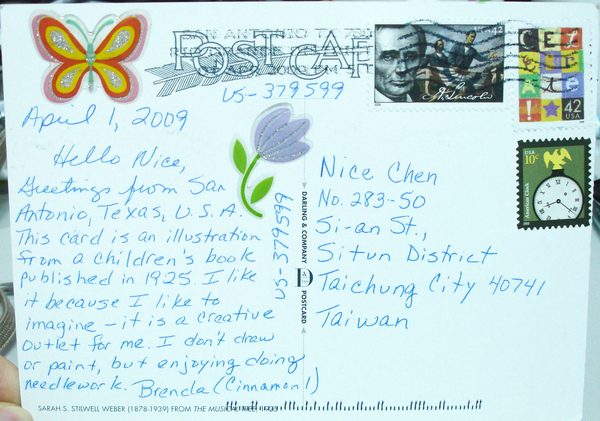 POSTCARD
US-379599
April 1, 2009
Hello Nice,
Greetings from San
Antonio, Texas, U.S.A.
This card is an illustration
from a children's book
published in 1925. I like
it because I like to
imagine - it is a creative
outlet for me. I don't draw
or paint, but enjoying doing
needlework. Brenda (Cinnamon1)
SARAH S. STILWELL WEBER (1878-1939) FROM THE MUSICAL TREE, 1925
US-379599
DARLING & COMPANY
D
POSTCARD
Nice Chen
No. 283-50
Si-an St.,
Situn District
Taichung City 40741
Taiwan
SAN ANTONIO TX
USA 42
A. Lincoln
CELEBRATE!
42
USA
USA
10c
American Clock